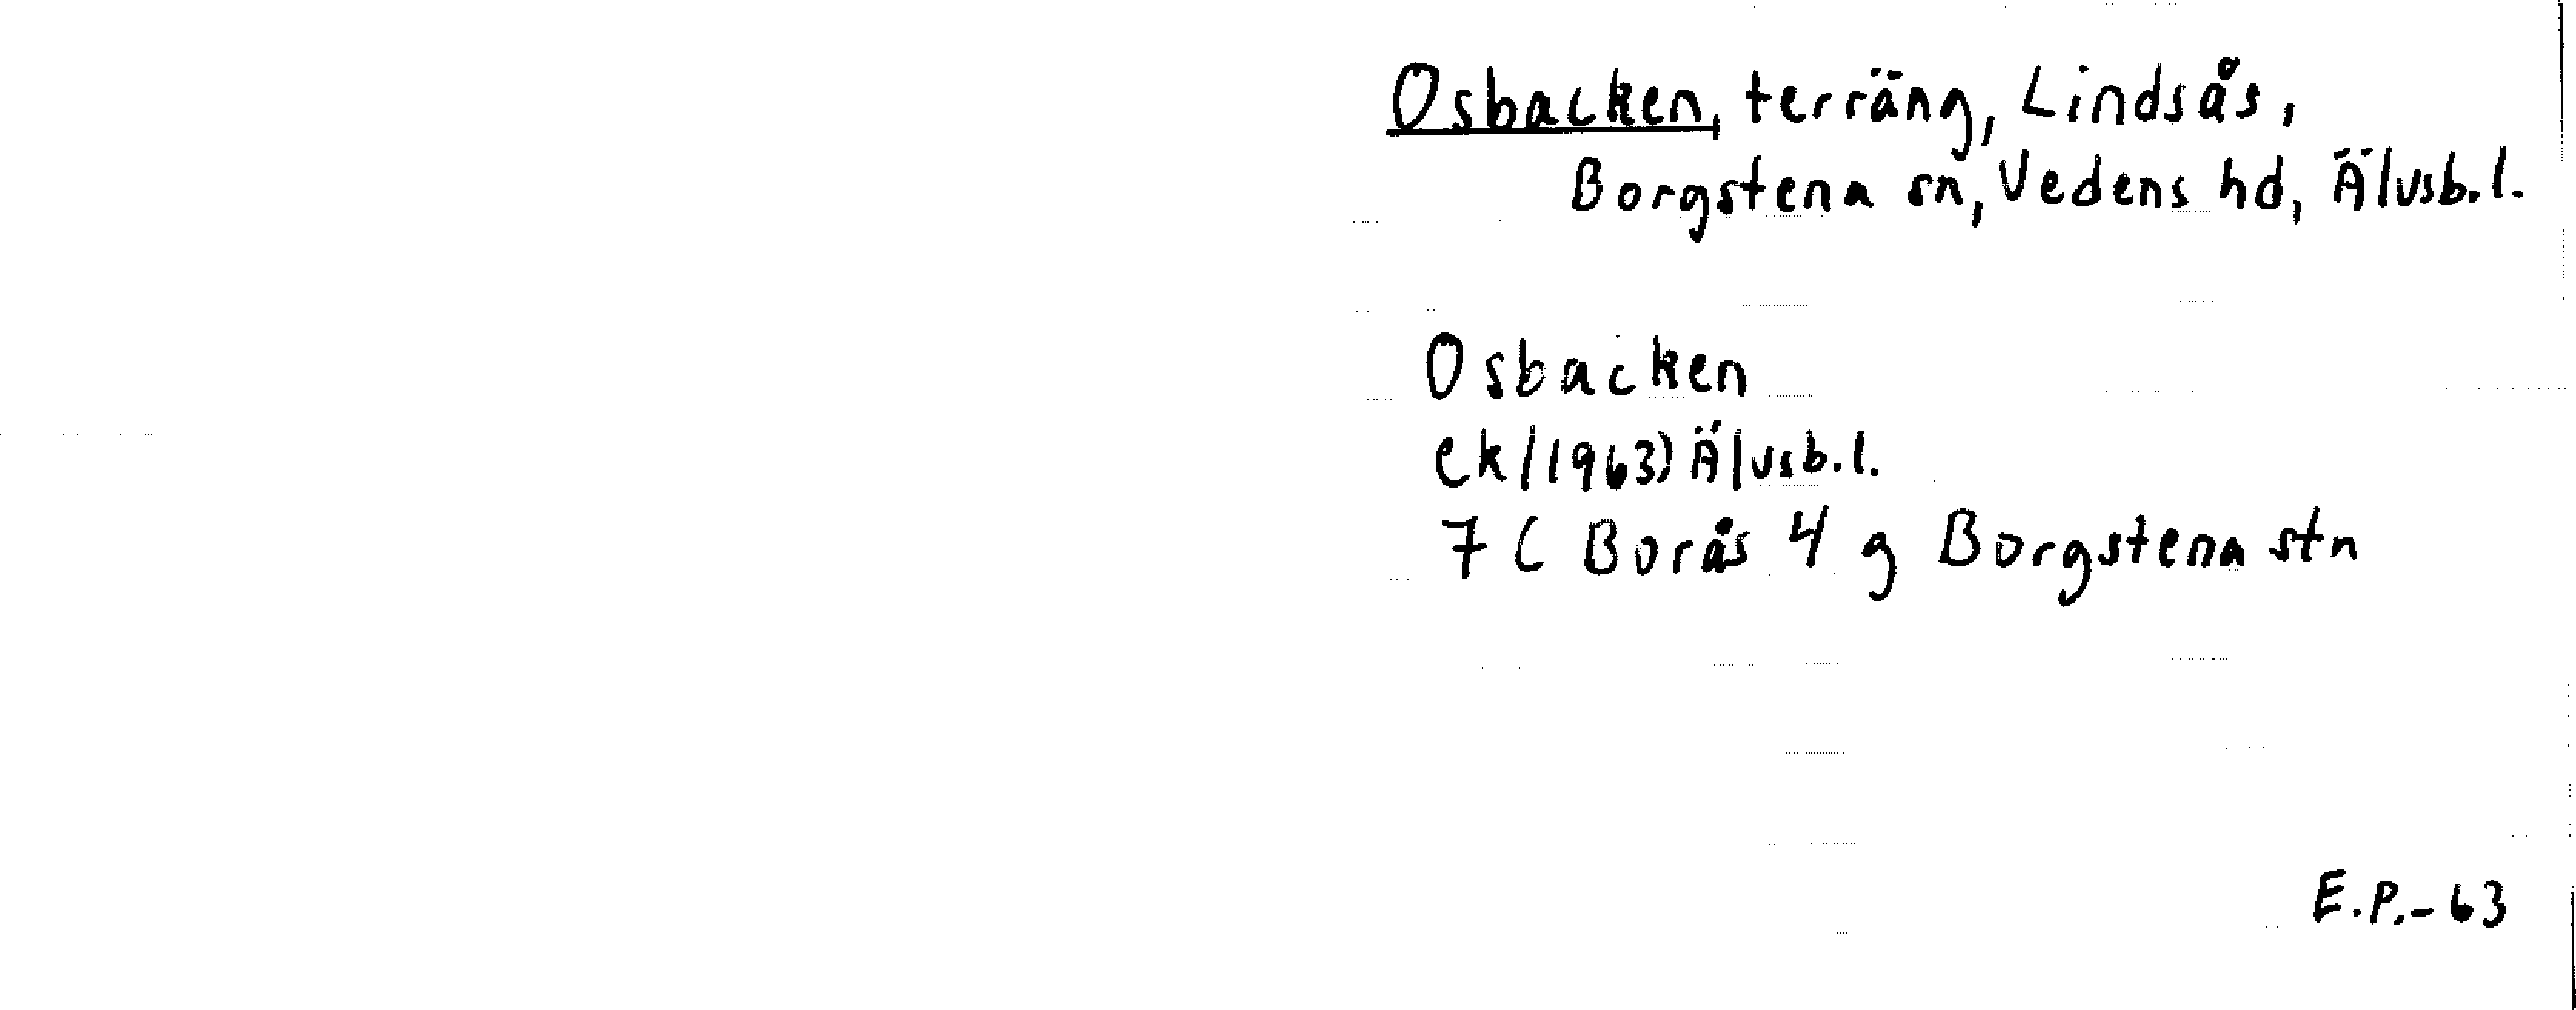 Osbacken, terräng, Lindsås,
Borgstena sn, Vedens hd, Älvsb.l.
Osbacken
ek/1963) Älvsb.l.
7 C Borås 4 g Borgstena stn
E.P.-63